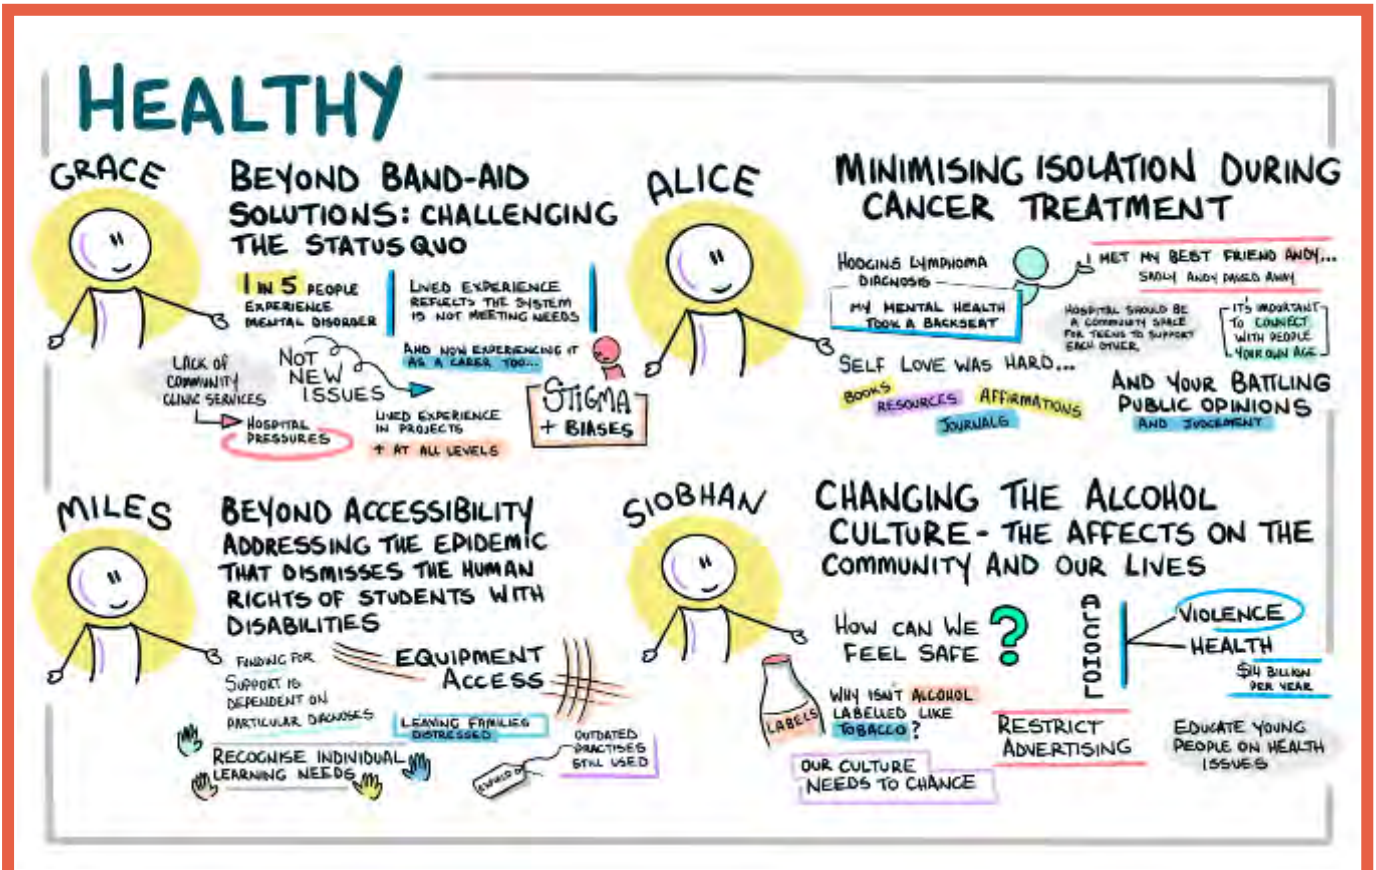 HEALTHY
GRACE
BEYOND BAND-AID
SOLUTIONS: CHALLENGING
THE STATUS QUO
1 IN 5 PEOPLE
EXPERIENCE
MENTAL DISORDER
LIVED EXPERIENCE
REFLECTS THE SYSTEM
IS NOT MEETING NEEDS
AND NOW EXPERIENCING IT
AS A CARER TOO...
LACK OF
COMMUNITY
CLINIC SERVICES
HOSPITAL
PRESSURES
NOT
NEW
ISSUES
LIVED EXPERIENCE
IN PROJECTS
+ AT ALL LEVELS
STIGMA
+ BIASES
ALICE
MINIMISING ISOLATION DURING
CANCER TREATMENT
HODGINS LYMPHOMA
DIAGNOSIS
MY MENTAL HEALTH
TOOK A BACKSEAT
I MET MY BEST FRIEND ANDY...
SADLY ANDY PASSED AWAY
HOSPITAL SHOULD BE
A COMMUNITY SPACE
FOR TEENS TO SUPPORT
EACH OTHER
IT'S IMPORTANT
TO CONNECT
WITH PEOPLE
YOUR OWN AGE
SELF LOVE WAS HARD...
BOOKS
RESOURCES
AFFIRMATIONS
JOURNALS
AND YOUR BATTLING
PUBLIC OPINIONS
AND JUDGEMENT
MILES
BEYOND ACCESSIBILITY
ADDRESSING THE EPIDEMIC
THAT DISMISSES THE HUMAN
RIGHTS OF STUDENTS WITH
DISABILITIES
FUNDING FOR
SUPPORT IS
DEPENDENT ON
PARTICULAR DIAGNOSES
EQUIPMENT
ACCESS
LEAVING FAMILIES
DISTRESSED
RECOGNISE INDIVIDUAL
LEARNING NEEDS
OUTDATED
PRACTISES
STILL USED
SIOBHAN
CHANGING THE ALCOHOL
CULTURE - THE AFFECTS ON THE
COMMUNITY AND OUR LIVES
HOW CAN WE
FEEL SAFE ?
LABELS
WHY ISN'T ALCOHOL
LABELLED LIKE
TOBACCO?
OUR CULTURE
NEEDS TO CHANGE
ALCOHOL
VIOLENCE
HEALTH
$14 BILLION
PER YEAR
RESTRICT
ADVERTISING
EDUCATE YOUNG
PEOPLE ON HEALTH
ISSUES